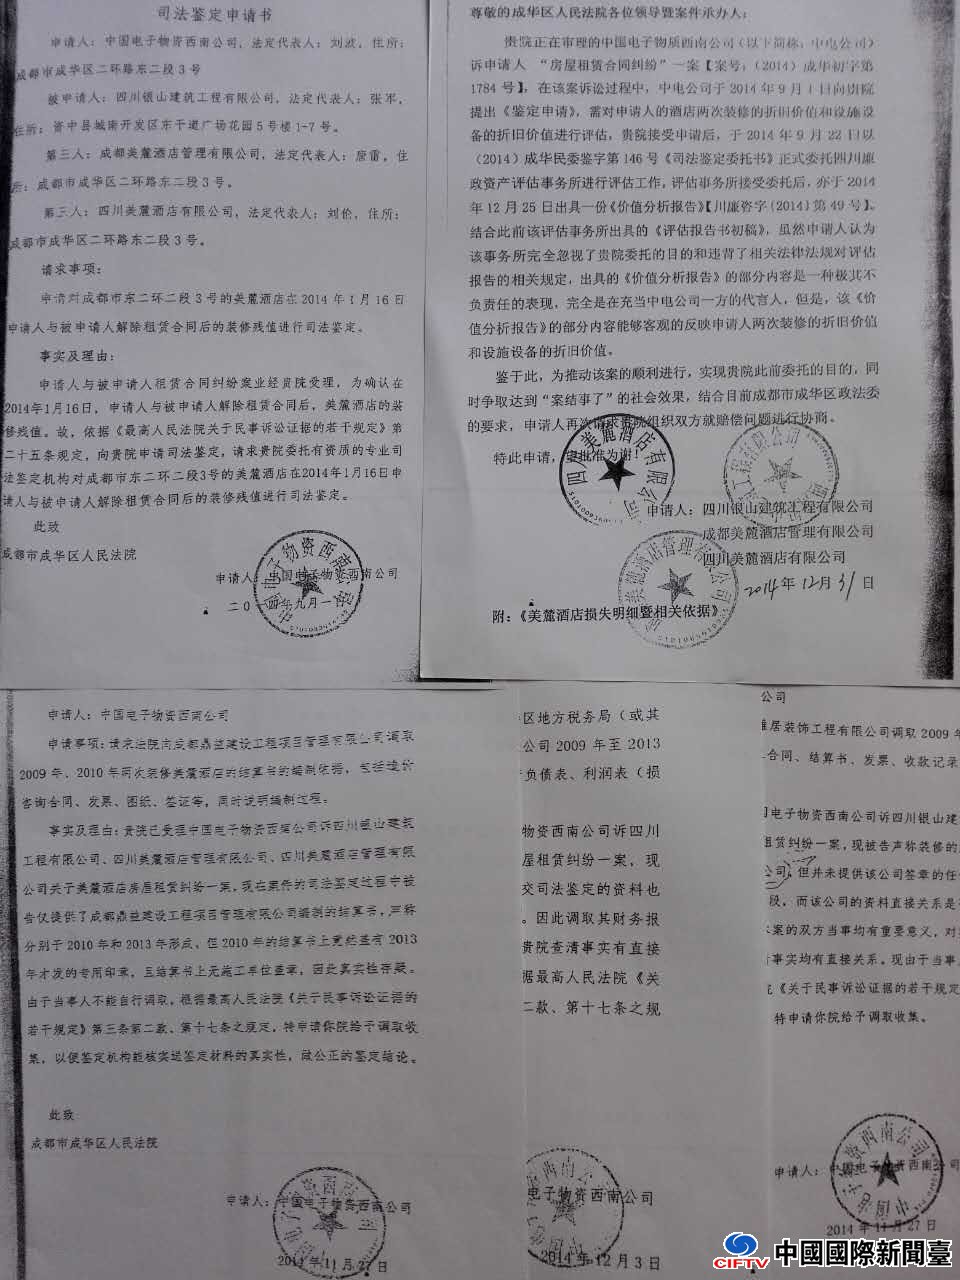 司法鉴定申请书
申请人：中国电子物资西南公司，法定代表人：刘波，住所：
成都市成华区二环路东二段3号
被申请人：四川银山建筑工程有限公司，法定代表人：张军，
住所：资中县城南开发区东干道广场花园5号楼1-7号。
第三人：成都美麓酒店管理有限公司，法定代表人：唐雷，住
所：成都市成华区二环路东二段3号。
第三人：四川美麓酒店有限公司，法定代表人：刘伦，住所：
成都市成华区二环路东二段3号。
请求事项：
申请对成都市东二环二段3号的美麓酒店在2014年1月16日
申请人与被申请人解除租赁合同后的装修残值进行司法鉴定。
事实及理由：
申请人与被申请人租赁合同纠纷案业经贵院受理，为确认在
2014年1月16日，申请人与被申请人解除租赁合同后，美麓酒店的装
修残值。故，依据《最高人民法院关于民事诉讼证据的若干规定》第
二十五条规定，向贵院申请司法鉴定，请求贵院委托有资质的专业司
法鉴定机构对成都市东二环二段3号的美麓酒店在2014年1月16日申
请人与被申请人解除租赁合同后的装修残值进行司法鉴定。
此致
成都市成华区人民法院
申请人：中国电子物资西南公司
二〇一四年九月一
尊敬的成华区人民法院各位领导暨案件承办人：
贵院正在审理的中国电子物质西南公司（以下简称：中电公司）
诉申请人“房屋租赁合同纠纷”一案【案号：（2014）成华初字第
1784号】，在该案诉讼过程中，中电公司于2014年9月1日向贵院
提出《鉴定申请》，需对申请人的酒店两次装修的折旧价值和设施设
备的折旧价值进行评估，贵院接受申请后，于2014年9月22日以
（2014）成华民委鉴字第146号《司法鉴定委托书》正式委托四川廉
政资产评估事务所进行评估工作，评估事务所接受委托后，亦于2014
年12月25日出具一份《价值分析报告》【川廉咨字（2014）第49号】。
结合此前该评估事务所出具的《评估报告书初稿》，虽然申请人认为
该事务所完全忽视了贵院委托的目的和违背了相关法律法规对评估
报告的相关规定，出具的《价值分析报告》的部分内容是一种极其不
负责任的表现，完全是在充当中电公司一方的代言人，但是，该《价
值分析报告》的部分内容能够客观的反映申请人两次装修的折旧价值
和设施设备的折旧价值。
鉴于此，为推动该案的顺利进行，实现贵院此前委托的目的，同
时争取达到“案结事了”的社会效果，结合目前成都市成华区政法委
的要求，申请人再次请求贵院组织双方就赔偿问题进行协商。
特此申请，望批准为谢！
申请人：四川银山建筑工程有限公司
成都美麓酒店管理有限公司
四川美麓酒店有限公司
2014年12月31日
附：《美麓酒店损失明细暨相关依据》
申请人：中国电子物资西南公司
申请事项：请求法院向成都鼎益建设工程项目管理有限公司调取
2009年、2010年两次装修美麓酒店的结算书的编制依据，包括造价
咨询合同、发票、图纸、签证等，同时说明编制过程。
事实及理由：贵院已受理中国电子物资西南公司诉四川银山建筑
工程有限公司、四川美麓酒店管理有限公司、四川美麓酒店管理有限
公司关于美麓酒店房屋租赁纠纷一案，现在案件的司法鉴定过程中被
告仅提供了成都鼎益建设工程项目管理有限公司编制的结算书，声称
分别于2010年和2013年形成，但2010年的结算书上竟然盖有2013
年才发的专用印章，且结算书上无施工单位盖章，因此真实性存疑。
由于当事人不能自行调取，根据最高人民法院《关于民事诉讼证据的
若干规定》第三条第二款、第十七条之规定，特申请你院给予调取收
集，以便鉴定机构能核实送鉴定材料的真实性，做公正的鉴定结论。
此致
成都市成华区人民法院
申请人：中国电子物资西南公司
2014年11月27
区地方税务局（或其
公司2009年至2013
负债表、利润表（损
物资西南公司诉四川
屋租赁纠纷一案，现
交司法鉴定的资料也
。因此调取其财务报
贵院查清事实有直接
据最高人民法院《关
二款、第十七条之规
电子物资西南公司
2014年12月3日
公司
雅居装饰工程有限公司调取2009年
合同、结算书、发票、收款记录
电子物资西南公司诉四川银山建
租赁纠纷一案，现被告声称装修的
公司，但并未提供该公司签章的任
段，而该公司的资料直接关系是
本案的双方当事均有重要意义，对
事实均有直接关系。现由于当事
《关于民事诉讼证据的若干规定
特申请你院给予调取收集。
申请人：中国电子物资西南公司
2014年11月27日
CIFTV 中國國際新聞臺